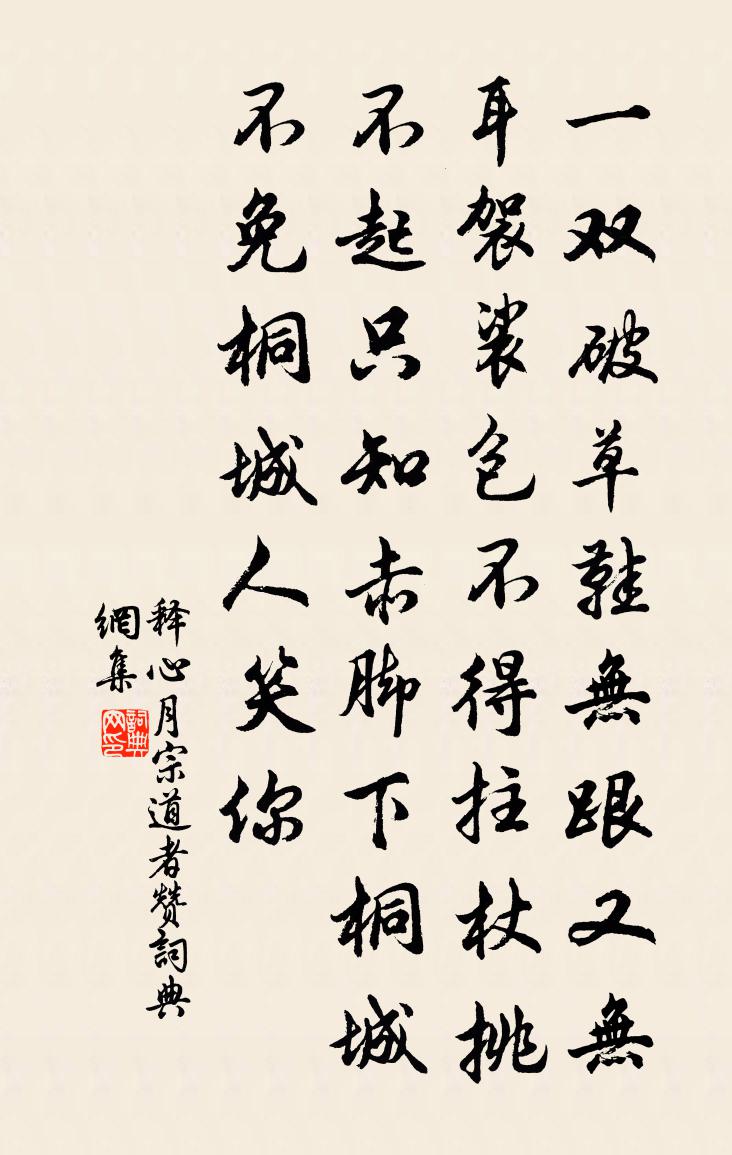 一双破草鞋無跟又無
耳袈裟包不得拄杖挑
不起只知赤脚下桐城
不免桐城人笑你
释心月宗道者赞詞典
網集
詞典
网印